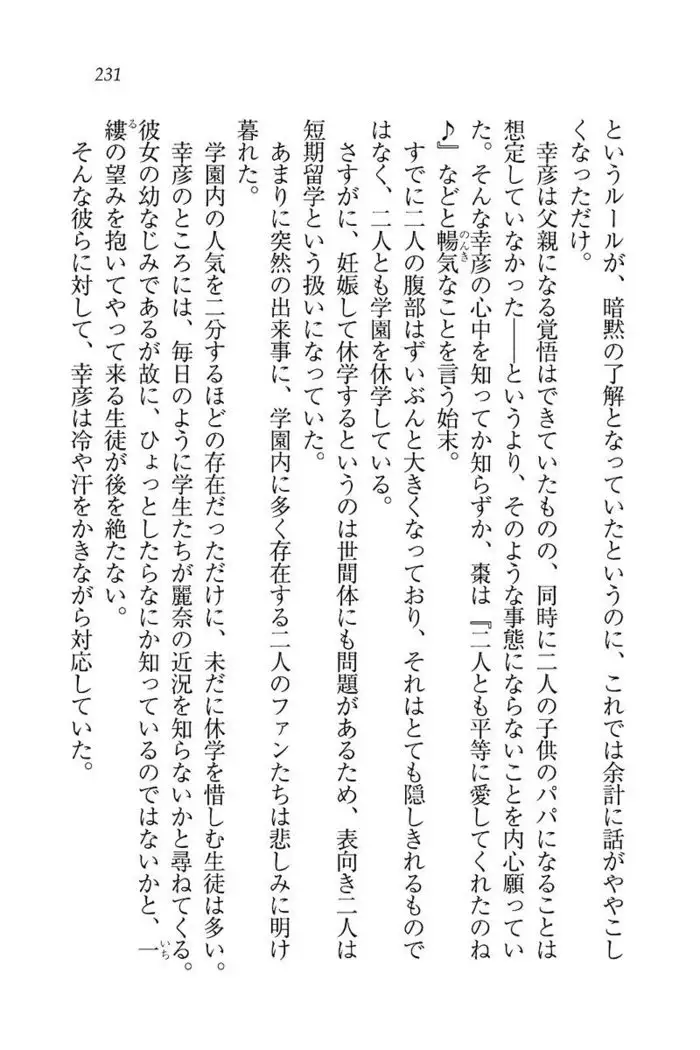 231
というルールが、暗黙の了解となっていたというのに、これでは余計に話がややこし
くなっただけ。
幸彦は父親になる覚悟はできていたものの、同時に二人の子供のパパになることは
想定していなかった――というより、そのような事態にならないことを内心願ってい
た。そんな幸彦の心中を知ってか知らずか、棗は『二人とも平等に愛してくれたのね
♪』などと暢気なことを言う始末。
のんき
すでに二人の腹部はずいぶんと大きくなっており、それはとても隠しきれるもので
はなく、二人とも学園を休学している。
さすがに、妊娠して休学するというのは世間体にも問題があるため、表向き二人は
短期留学という扱いになっていた。
あまりに突然の出来事に、学園内に多く存在する二人のファンたちは悲しみに明け
暮れた。
学園内の人気を二分するほどの存在だっただけに、未だに休学を惜しむ生徒は多い。
幸彦のところには、毎日のように学生たちが麗奈の近況を知らないかと尋ねてくる。
彼女の幼なじみであるが故に、ひょっとしたらなにか知っているのではないかと、一
いち
縷の望みを抱いてやって来る生徒が後を絶たない。
る
そんな彼らに対して、幸彦は冷や汗をかきながら対応していた。